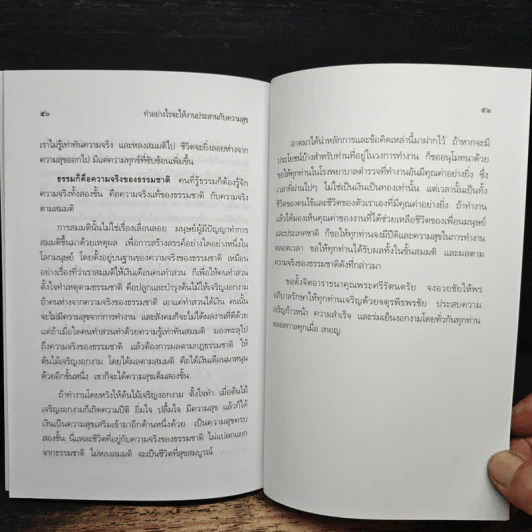 ๕๐
ทำอย่างไรจะให้งานประสานกับความสุข
เราไม่รู้เท่าทันความจริง และหลงสมมติไป ชีวิตจะยิ่งลอยห่างจาก
ความสุขออกไป มีแต่ความทุกข์ที่ซับซ้อนเพิ่มขึ้น
ธรรมก็คือความจริงของธรรมชาติ คนที่รู้ธรรมก็ต้องรู้จัก
ความจริงทั้งสองชั้น คือความจริงแท้ของธรรมชาติ กับความจริง
ตามสมมติ
การสมมตินั้นไม่ใช่เรื่องเลื่อนลอย มนุษย์ผู้มีปัญญาทำการ
สมมติขึ้นมาด้วยเหตุผล เพื่อการสร้างสรรค์อย่างใดอย่างหนึ่งใน
โลกมนุษย์ โดยตั้งอยู่บนฐานของความจริงของธรรมชาติ เหมือน
อย่างเรื่องที่ว่าเราสมมติให้เงินเดือนคนทำสวน ก็เพื่อให้คนทำสวน
ตั้งใจทำเหตุตามธรรมชาติ คือปลูกและบำรุงต้นไม้ให้เจริญงอกงาม
ถ้าคนห่างจากความจริงของธรรมชาติ เอาแค่ทำสวนได้เงิน คนนั้น
จะไม่มีความสุขจากการทำงาน และสังคมก็จะไม่ได้ผลงานที่ดีด้วย
แต่ถ้าเมื่อใดคนทำสวนทำด้วยความรู้เท่าทันสมมติ มองทะลุไป
ถึงความจริงของธรรมชาติ แล้วต้องการผลตามกฎธรรมชาติ ให้
ต้นไม้เจริญงอกงาม โดยได้ผลตามสมมติ คือได้เงินเดือนมาหนุน
ด้วยอีกชั้นหนึ่ง เขาก็จะได้ความสุขเต็มสองชั้น
ถ้าทำงานโดยหวังให้ต้นไม้เจริญงอกงาม ตั้งใจทำ เมื่อต้นไม้
เจริญงอกงามก็เกิดความปีติ อิ่มใจ ปลื้มใจ มีความสุข แล้วก็ได้
เงินเป็นความสุขเสริมเข้ามาอีกด้านหนึ่งด้วย เป็นความสุขครบ
สองชั้น นี่แหละชีวิตที่อยู่กับความจริงของธรรมชาติ ไม่แปลกแยก
จากธรรมชาติ ไม่หลงสมมติ จะเป็นชีวิตที่สุขสมบูรณ์
๕๑
อาตมาได้นำหลักการและข้อคิดเหล่านี้มาฝากไว้ ถ้าหากจะมี
ประโยชน์บ้างสำหรับท่านที่อยู่ในวงการทำงาน ก็ขออนุโมทนาด้วย
ขอให้ทุกท่านในโรงพยาบาลตำรวจที่ทำงานอันมีคุณค่าอย่างยิ่ง ซึ่ง
เวลาที่ผ่านไปๆ ไม่ใช่เป็นเงินเป็นทองเท่านั้น แต่เวลานั้นเป็นทั้ง
ชีวิตของคนไข้และชีวิตของตัวเราเองที่มีคุณค่าอย่างยิ่ง ถ้าทำงาน
แล้วได้มองเห็นคุณค่าของงานที่ได้ช่วยเหลือชีวิตของเพื่อนมนุษย์
และประเทศชาติ ก็ขอให้ทุกท่านจงมีปีติและความสุขในการทำงาน
ตลอดเวลา ขอให้ทุกท่านได้รับผลทั้งในชั้นสมมติ และผลตาม
ความจริงของธรรมชาติดังที่กล่าวมา
ขอตั้งจิตอาราธนาคุณพระศรีรัตนตรัย จงอวยชัยให้พร
อภิบาลรักษาให้ทุกท่านเจริญด้วยจตุรพิธพรชัย ประสบความ
เจริญก้าวหน้า ความสำเร็จ และร่มเย็นงอกงามโดยทั่วกันทุกท่าน
ตลอดกาลทุกเมื่อ เทอญ